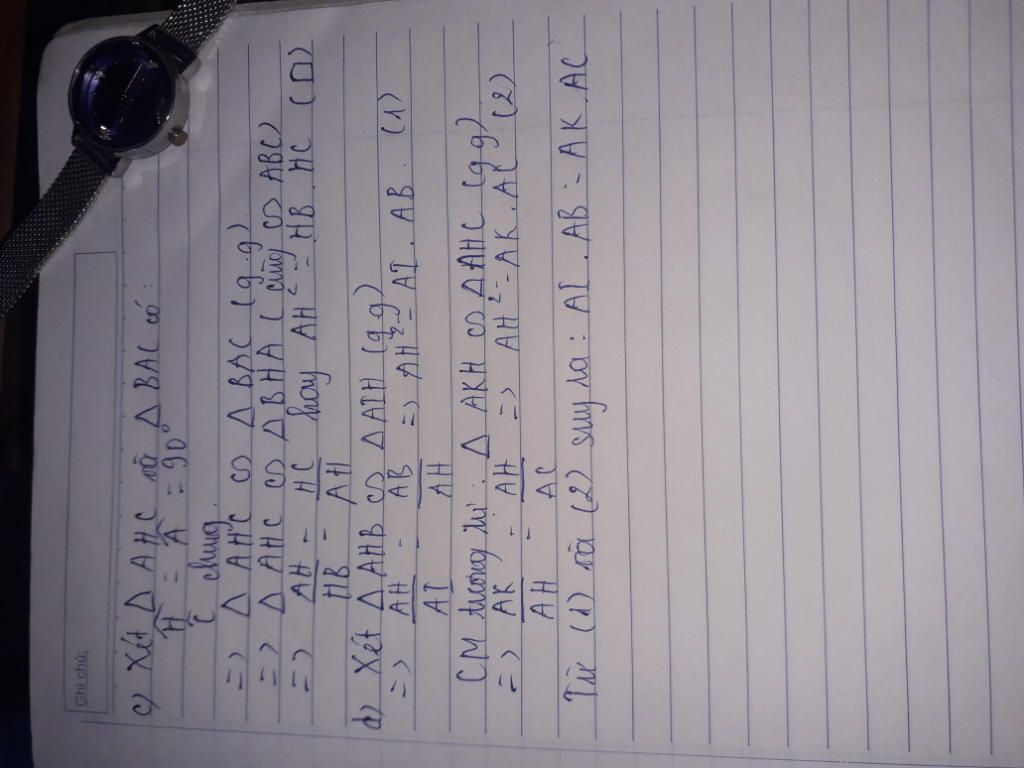 Ghi chú:
c) Xét Δ AHC và Δ BAC có:
Ĥ = Â = 90°
Ĉ chung
=> Δ AHC ∽ Δ BAC (g.g)
=> Δ AHC ∽ Δ BHA (cùng ∽ ABC)
=> AH/HB = HC/AH hay AH² = HB . HC (□)
d) Xét Δ AHB ∽ Δ AIH (g.g)
=> AH/AI = AB/AH => AH² = AI . AB. (1)
CM tương tự: Δ AKH ∽ Δ AHC (g.g)
=> AK/AH = AH/AC => AH² = AK . AC (2)
Từ (1) và (2) suy ra: AI . AB = AK . AC